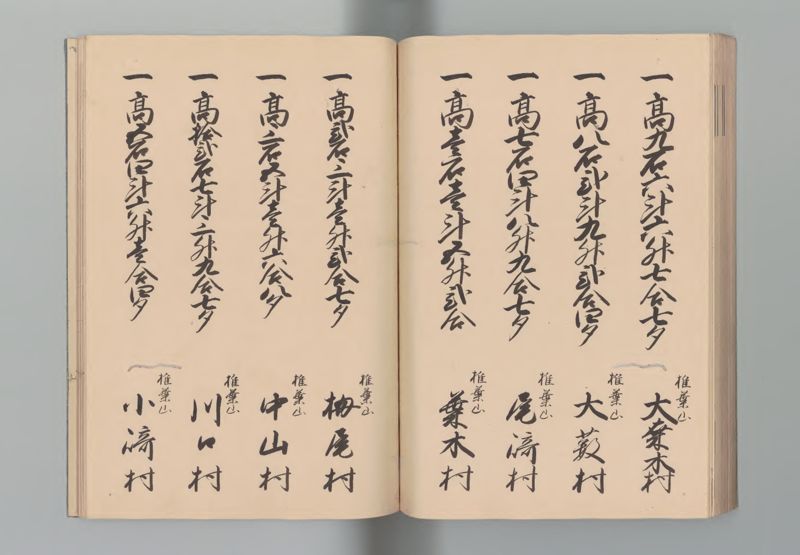 一 高九石六斗六升七合七夕
椎葉山
大葉木村
一 高八石弐斗九升弐合四夕
椎葉山
大薮村
一 高七石四斗八升九合七夕
椎葉山
尾崎村
一 高壱石壱斗五升弐合
椎葉山
葉木村
一 高弐石三斗壱升弐合七夕
椎葉山
栂尾村
一 高三石五斗壱升六合八夕
椎葉山
中山村
一 高拾弐石七斗三升九合七夕
椎葉山
川口村
一 高五石四斗六升壱合四夕
椎葉山
小崎村